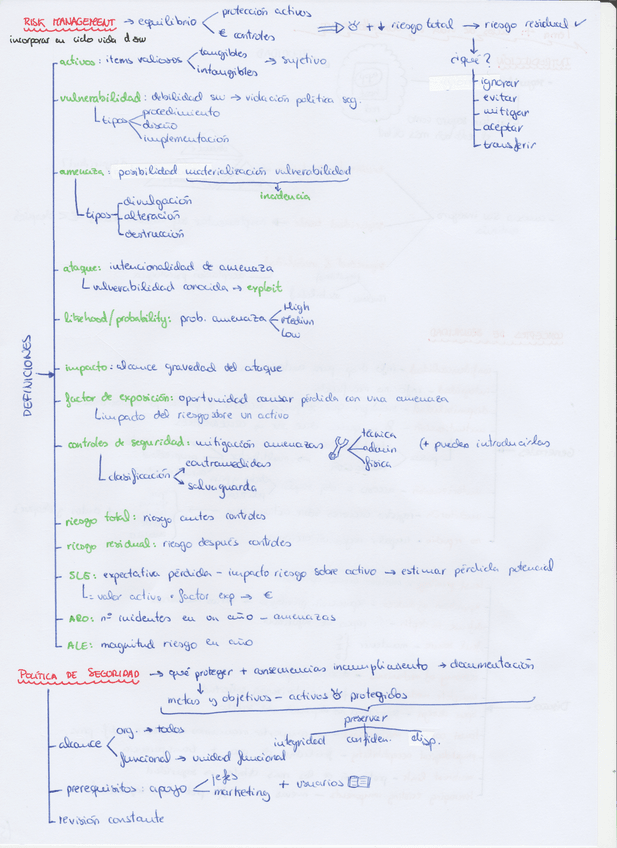 RISK MANAGEMENT → equilibrio
protección activos
€ controles
⇒ + ↓ riesgo total → riesgo residual ✓
incorporar en ciclo vida d sw
¿qué?
ignorar
evitar
mitigar
aceptar
transferir
DEFINICIONES
activos: items valiosos
tangibles
intangibles
→ sujetivo
vulnerabilidad: debilidad sw → violación política seg.
tipos
procedimiento
diseño
implementación
amenaza: posibilidad materialización vulnerabilidad
incidencia
tipos
divulgación
alteración
destrucción
ataque: intencionalidad de amenaza
vulnerabilidad conocida → exploit
likehood/probability: prob. amenaza
High
Medium
Low
impacto: alcance gravedad del ataque
factor de exposición: oportunidad causar pérdida con una amenaza
impacto del riesgo sobre un activo
controles de seguridad: mitigación amenazas
técnica
admin
física
(+ pueden introducirlas
clasificación
contramedidas
salvaguarda
riesgo total: riesgo antes controles
riesgo residual: riesgo después controles
SLE: expectativa pérdida - impacto riesgo sobre activo → estimar pérdida potencial
= valor activo * factor exp → €
ARO: nº incidentes en un año - amenazas
ALE: magnitud riesgo en año
POLÍTICA DE SEGURIDAD → qué proteger + consecuencias incumplimiento → documentación
metas y objetivos - activos protegidos
preservar
integridad confiden. disp.
alcance
org. → todos
funcional → unidad funcional
prerequisitos: apoyo
jefes
marketing
+ usuarios
revisión constante